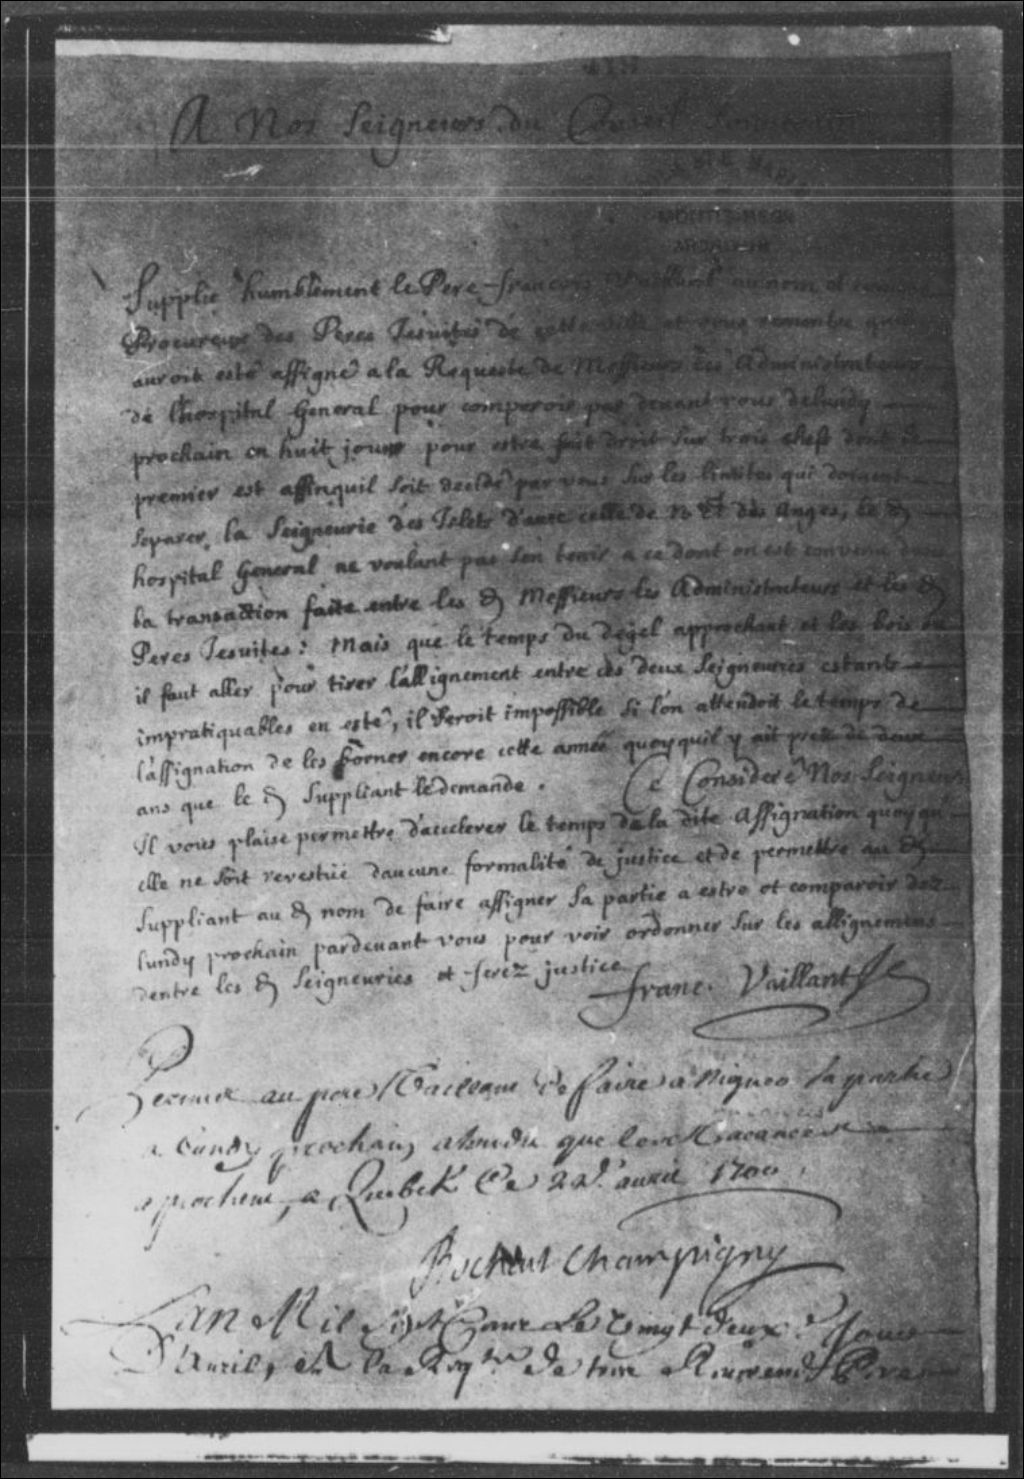 A Nos Seigneurs du Conseil
Supplie humblement le Pere francois Vaillant au nom et comme
Procureur des Peres Iesuites de cette ville et vous remontre quil
auroit esté assigné a la Requeste de Messieurs les Administrateurs
de l'hospital General pour comparoir par devant vous de lundy
prochain en huit jours pour estre fait droit sur trois chefs dont le
premier est affinquil soit decidé par vous sur les limites qui doivent
separer la Seigneurie des Islets d'avec celle de N. D. des Anges, le d.
hospital General ne voulant pas sen tenir a ce dont on est convenu dans
la transaction faite entre les d. Messieurs les Administrateurs et les d.
Peres Iesuites: Mais que le temps du degel approchant et les bois ou
il faut aller pour tirer l'allignement entre ces deux Seigneuries estants
impratiquables en esté, il seroit impossible si l'on attendoit le temps de
l'assignation de les borner encore cette année quoyquil y ait prez de deux
ans que le d. Suppliant le demande. Ce Consideré Nos Seigneurs
Il vous plaise permettre d'accelerer le temps de la dite Assignation quoy qu'
elle ne soit revestüe daucune formalité de justice et de permettre au d.
Suppliant au d. nom de faire assigner sa partie a estre et comparoir dez
lundy prochain pardevant vous pour voir ordonner sur les allignemens
dentre les d. Seigneuries et ferez justice
franc. Vaillant
Permis au pere Vaillant de faire assigner sa partie
a Lundy prochain attendu que les vacances
aprochent, a Quebek Ce 22.e avril 1700.
Bochart Champigny
Lan Mil Sept Cent Le vingt deux.e Jour
D'Avril, a la Reqte de tres Reverend Pere